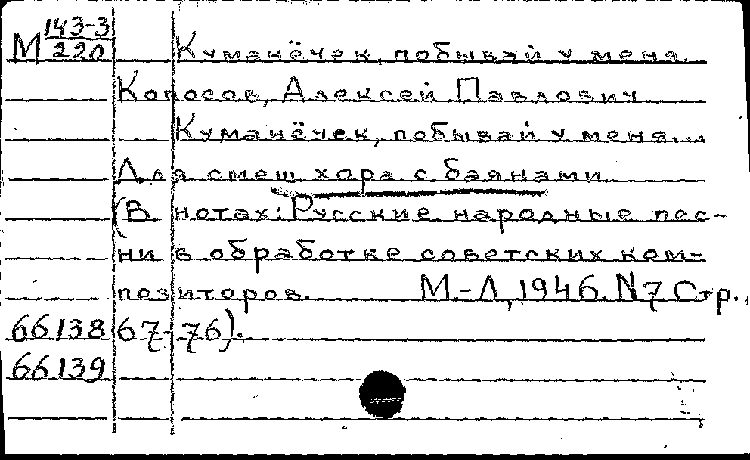 М 143-3/220 Куманёчек, побывай у меня.
Копосов, Алексей Павлович
Куманёчек, побывай у меня...
Для смеш хора с баянами
(В нотах: Русские народные пес-
ни в обработке советских ком-
позиторов. М.-Л, 1946. N7 Стр.,
66138 67-76).
66139